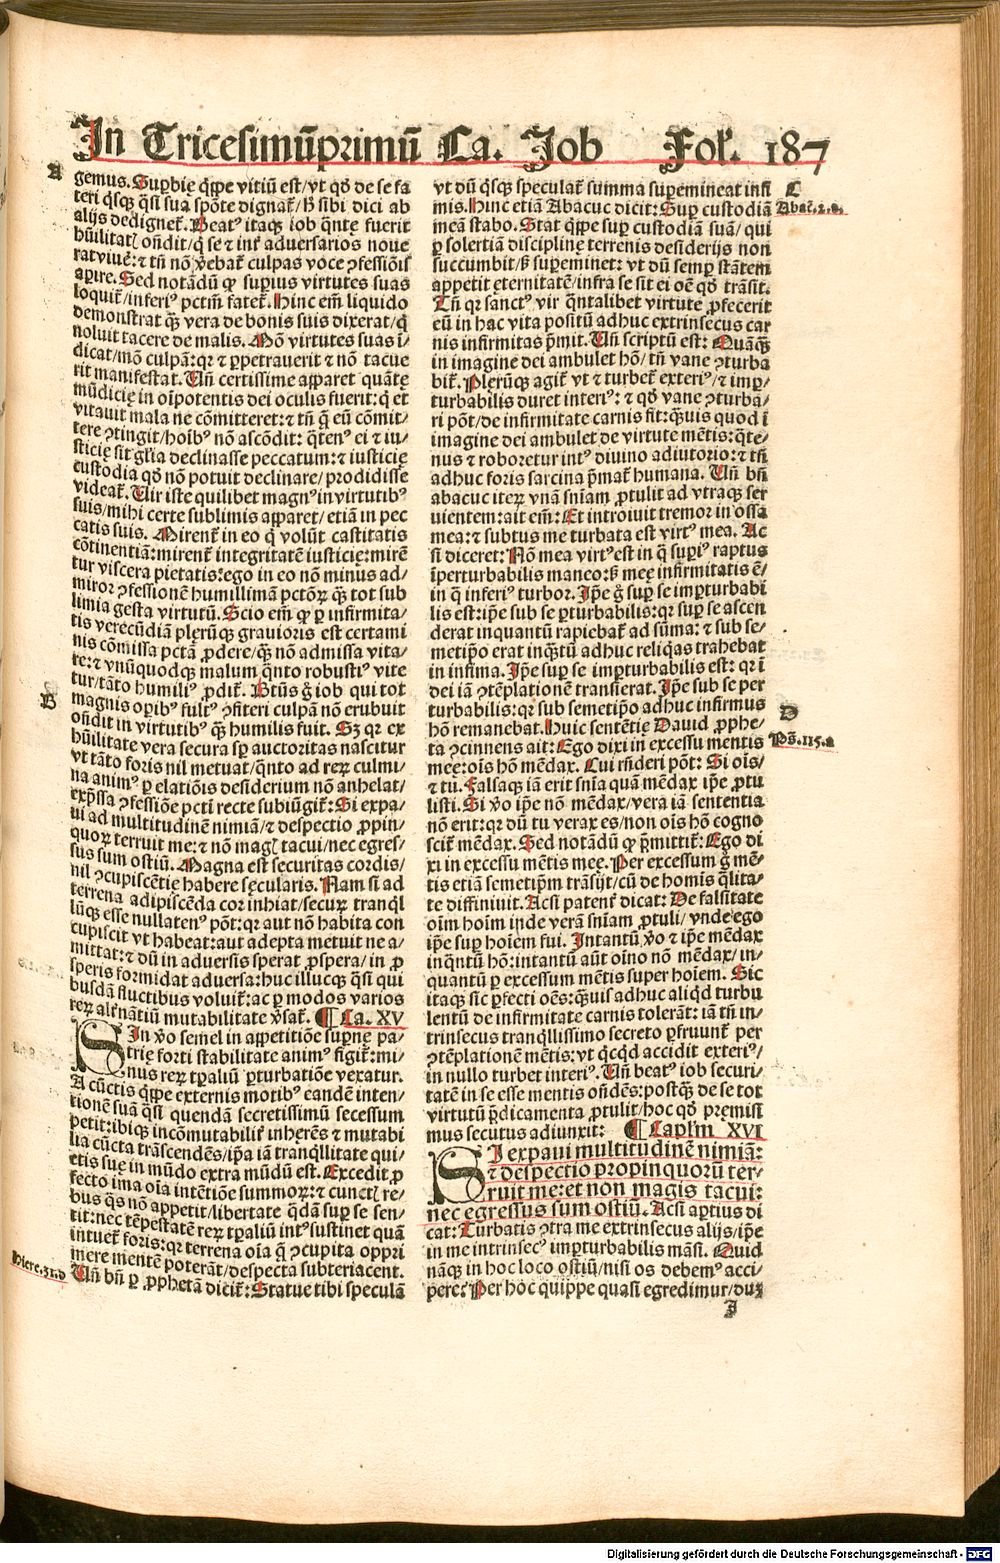 In Tricesimūprimū Ca. Job Fol. 187
A
gemus. Suꝑbię qͥppe vitiū est/vt qd̕ de se fa
teri qͥsqꝫ qͣsi sua spōte dignat̕/ ꝑ sibi dici ab
alijs dedignet̕. Beatꝰ itaqꝫ iob qͣntę fuerit
hūilitatꝭ oñdit/qͥ se ⁊ int̕ aduersarios noue
rat viuē̕: ⁊ tñ nō v̕ebat̕ culpas voce ꝯfessiōis
aꝑire. Sed notādū ꝙ suꝑius virtutes suas
loquit̕/inferiꝰ pctm̄ fatet̕. Hinc em̄ liquido
demonstrat qꝫ vera de bonis suis dixerat/qͥ
noluit tacere de malis. Nō virtutes suas ī/
dicat/nō culpā: qꝛ ⁊ ꝑpetrauerit ⁊ nō tacue
rit manifestat. Uñ certissime aꝑaret quātę
mūdicię in oīpotentis dei oculis fuerit: qͥ et
vitauit mala ne cōmitteret: ⁊ tñ q̄ eū cōmit/
tere ꝯtingit/hoībꝰ nō ascōdit: qͣtenꝰ ei ⁊ iu/
sticię sit gl̄ia declinasse peccatum: ⁊ iusticię
custodia qd̕ nō potuit declinare/prodidisse
videat̕. Uir iste quilibet magnꝰ in virtutibꝰ
suis/mihi certe sublimis aꝑaret/etiā in pec
catis suis. Mirent̕ in eo qͥ volūt castitatis
cōtinentiā: mirent̕ integritatē iusticię: mirē
tur viscera pietatis: ego in eo nō minus ad/
miror ꝯfessionē humillimā pctōꝝ qͣꝫ tot sub
limia gesta virtutū. Scio em̄ ꝙ ꝑ infirmita/
tis verecūdiā plęrūqꝫ grauioris est certami
nis cōmissa pctā ꝓdere/qͣꝫ nō admissa vita/
re: ⁊ vnūquodqꝫ malum qͣnto robustiꝰ vite
tur/tāto humiliꝰ ꝓdit̕. Btūs g̊ iob qui tot
B
magnis oꝑibꝰ fultꝰ ꝯfiteri culpā nō erubuit
oñdit in virtutibꝰ qͣꝫ humilis fuit. Sꝫ qꝛ ex
hūilitate vera secura sꝑ auctoritas nascitur
vt tāto foris nil metuat/qͣnto ad reꝝ culmi/
na animꝰ ꝑ elatiōis desiderium nō anhelat/
exp̄ssa ꝯfessiōe pctī recte subiūgit̕: Si expa/
ui ad multitudinē nimiā/⁊ despectio ꝓpin/
quoꝝ terruit me: ⁊ nō magꝭ tacui/nec egres/
sus sum ostiū. Magna est securitas cordis/
nil ꝯcupiscētię habere sęcularis. Nam si ad
terrena adipiscēda cor inhiat/secuꝝ tranqͥl
lūqꝫ esse nullatenꝰ pōt: qꝛ aut nō habita con
cupiscit vt habeat: aut adepta metuit ne a/
mittat: ⁊ dū in aduersis sperat ꝓspera/in ꝓ
speris formidat aduersa: huc illucqꝫ qͣsi qui
busdā fluctibus voluit̕: ac ꝑ modos varios
reꝝ alt̕nātiū mutabilitate v̕sat̕. ¶ Ca. XV
SIn vo semel in aꝑetitiōe supnę pa/
trię forti stabilitate animꝰ figit̕: mi/
nus reꝝ tꝑaliū ꝑturbatiōe vexatur.
A cūctis qͥppe externis motibꝰ eandē inten/
tionē suā qͣsi quendā secretissimū secessum
petit: ibiqꝫ incōmutabilit̕ inherēs ⁊ mutabi
lia cūcta trāscendēs/ip̄a iā tranqͥllitate qui/
etis sue in mūdo extra mūdū est. Excedit ꝓ
fecto ima oīa intētiōe summoꝝ: ⁊ cunctꝭ re/
bus qͣs nō appetit/libertate qͣdā suꝑ se sen/
tit: nec tēpestatē reꝝ tꝑaliū intꝰ sustinet quā
intuet̕ foris: qꝛ terrena oīa q̄ ꝯcupita oppri
mere mentē poterāt/despecta subteriacent.
Hiere.31.d
Uñ bñ ꝑ ꝓphetā dicit̕: Statue tibi speculā
vt dū qͣsqꝫ speculat̕ summa suꝑemineat infi
C
mis. Hinc etiā Abacuc dicit: Suꝑ custodiā
Abac̕.2.a.
meā stabo. Stat qͥppe suꝑ custodiā suā/ qui
ꝑ solertiā disciplinę terrenis desiderijs non
succumbit/ꝫ suꝑeminet: vt dū semꝑ stātem
appetit eternitatē/infra se sit ei oē qd̕ trāsit.
Tñ qꝛ sanctꝰ vir qͣntalibet virtute ꝓfecerit
eū in hac vita positū adhuc extrinsecus car
nis infirmitas p̄mit. Uñ scriptū est: Quāqꝫ
in imagine dei ambulet hō/ tñ vane ꝯturba
bit̕. Plęrūqꝫ agit̕ vt ⁊ turbet̕ exteriꝰ/⁊ imꝑ/
turbabilis duret interiꝰ: ⁊ qd̕ vane ꝯturba/
ri pōt/de infirmitate carnis fit: qͣuis quod ī
imagine dei ambulet de virtute mētis: qͣte/
nus ⁊ roboretur intꝰ diuino adiutorio: ⁊ tñ
adhuc foris sarcina p̄mat̕ humana. Uñ bñ
abacuc iteꝝ vnā sniam ꝓtulit ad vtraqꝫ ser
uientem: ait em̄: Et introiuit tremor in ossa
mea: ⁊ subtus me turbata est virtꝰ mea. Ac
si diceret: Nō mea virtꝰ est in q̄ suꝑiꝰ raptus
īperturbabilis maneo: ꝫ meę infirmitatis ē/
in q̄ inferiꝰ turbor. Ip̄e g̊ suꝑ se imꝑturbabi
lis est: ip̄e sub se ꝑturbabilis: qꝛ suꝑ se ascen
derat inquantū rapiebat̕ ad sūma: ⁊ sub se/
metip̄o erat inqͣtū adhuc reliqͥas trahebat
in infima. Ip̄e suꝑ se imꝑturbabilis est: qꝛ ī
dei iā ꝯtēplationē transierat. Ip̄e sub se per
turbabilis: qꝛ sub semetip̄o adhuc infirmus
D
hō remanebat. Huic sentētię Dauid ꝓphe/
ta ꝯcinnens ait: Ego dixi in excessu mentis
Ps̄.115.a
meę: oīs hō mēdax. Cui rñderi pōt: Si oīs/
⁊ tu. Falsaqꝫ iā erit snīa quā mēdax ip̄e ꝓtu
listi. Si v̊o ip̄e nō mēdax/vera iā sententia
nō erit: qꝛ dū tu verax es/non oīs hō cogno
scit̕ mēdax. Sed notādū ꝙ p̄mittit̕: Ego di
xi in excessu mētis meę. Per excessum g̊ mē/
tis etiā semetip̄m trāsijt/cū de homīs qͣlita/
te diffiniuit. Acsi patent̕ dicat: De falsitate
oīm hoīm inde verā snīam ꝓtuli/ vnde ego
ip̄e suꝑ hoīem fui. Intantū v̊o ⁊ ip̄e mēdax
inqͣntū hō: intantū aūt oīno nō mēdax/in/
quantū ꝑ excessum mētis super hoīem. Sic
itaqꝫ sic ꝑfecti oēs: qͣuis adhuc aliqͥd turbu
lentū de infirmitate carnis tolerāt: iā tñ in/
trinsecus tranqͥllissimo secreto ꝑfruunt̕ per
ꝯtēplationē mētis: vt qͥcqͥd accidit exteriꝰ/
in nullo turbet interiꝰ. Uñ beatꝰ iob securi/
tatē in se esse mentis oñdēs: postqͣꝫ de se tot
virtutū p̄dicamenta ꝓtulit/hoc qd̕ premisi
mus secutus adiunxit: ¶ Capl̄m XVI
SI expaui multitudinē nimiā:
⁊ despectio propinquorū ter/
ruit me: et non magis tacui:
nec egressus sum ostiū. Acsi aꝑtius di
cat: Turbatis ꝯtra me extrinsecus alijs/ip̄e
in me intrinsecꝰ imꝑturbabilis māsi. Quid
nāqꝫ in hoc loco ostiū/nisi os debemꝰ acci/
pere? Per hoc quippe quasi egredimur/dum
J
Digitalisierung gefördert durch die Deutsche Forschungsgemeinschaft - DFG